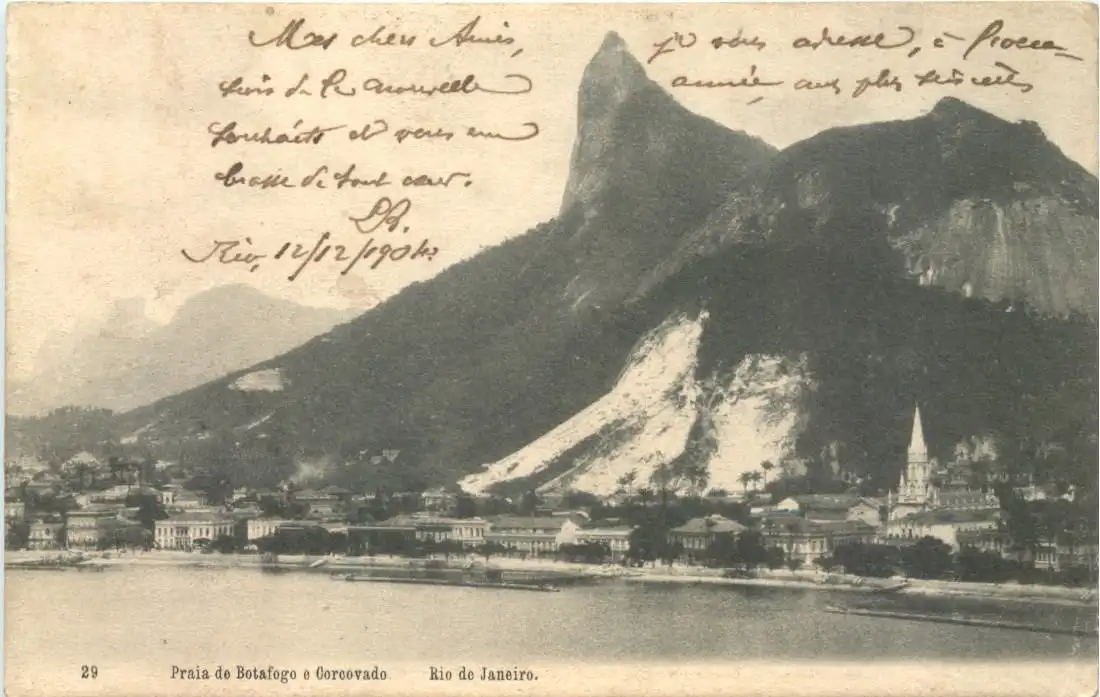 Mes chers Amis, je vous adresse, à l'occa-
sion de la nouvelle année mes plus sincères
souhaits et vous em-
brasse de tout cœur.
Rio, 12/12/1904
29 Praia de Botafogo e Corcovado Rio de Janeiro.